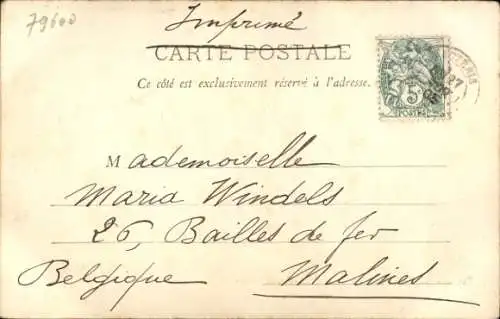 79600
Imprimé
CARTE POSTALE
Ce côté est exclusivement réservé à l'adresse.
5
POSTES
Mademoiselle
Maria Windels
26, Bailles de fer
Belgique Malines